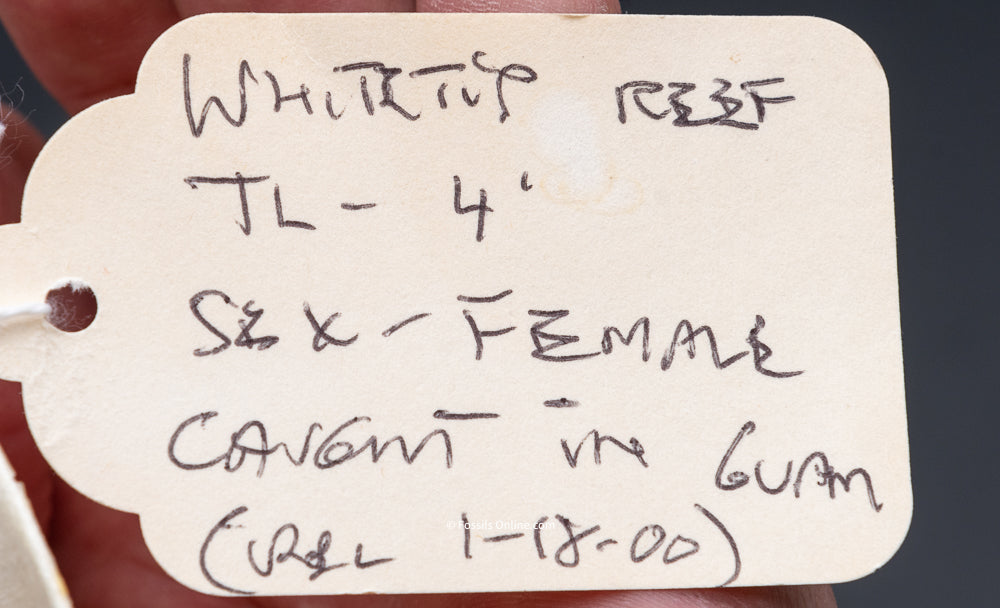 WHITETIP REEF
TL - 4'
SEX - FEMALE
CAUGHT IN GUAM
© Fossils Online.com
( 1-18-00)